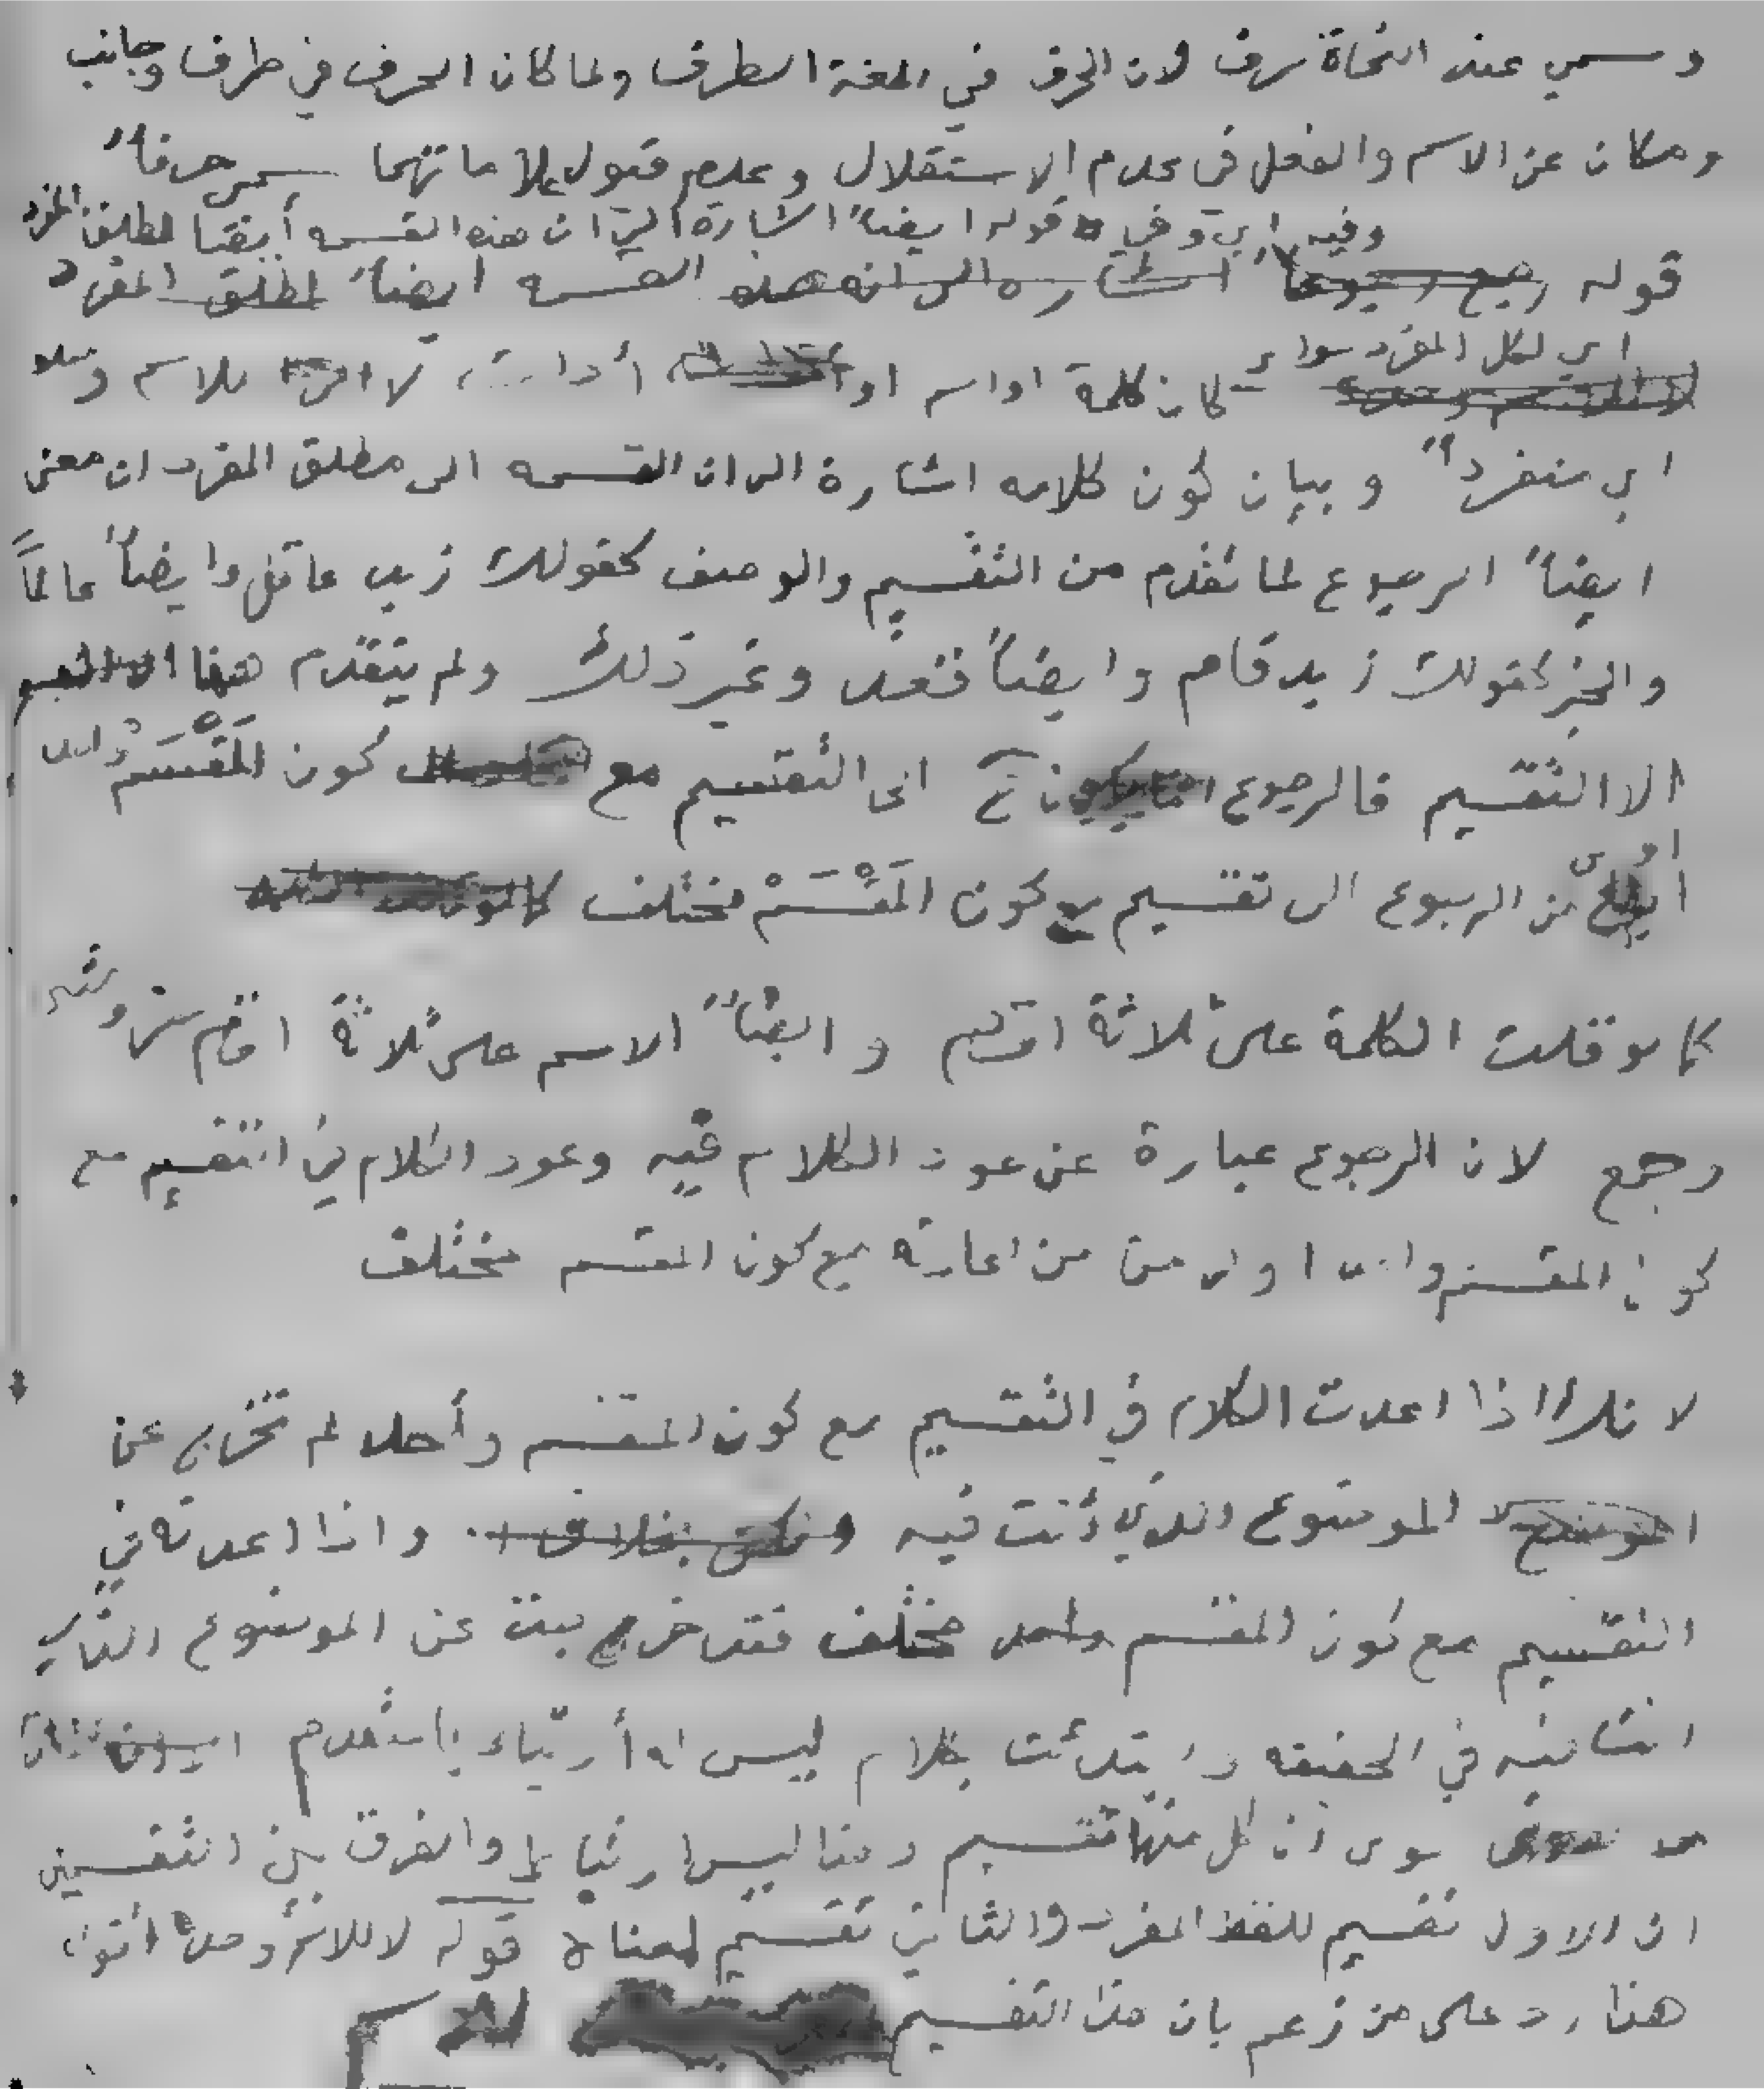 وسمي عند النحاة حرف لان الحرف في اللغة الطرف ولما كان الحرف في طرف وجانب
ومكان عن الاسم والفعل في عدم الاستقلال وعدم قبول علاماتهما سمي حرفاً
وفيه اي وفي قوله ايضاً اشارة الى ان هذه القسمه أيضا لمطلق المفرد
قوله رجع رجوعاً اشاره الى ان هذه القسمه ايضاً لمطلق المفرد
اي لكل المفرد سواء
كان كلمة او اسم او أدات لا للاسم وحده
اي منفرداً وبيان كون كلامه اشارة الى ان القسمه الى مطلق المفرد ان معنى
ايضاً الرجوع لما تقدم من التقسيم والوصف كقولك زيد عاقل وايضاً عالماً
والخبر كقولك زيد قام وايضاً قعد وغير ذلك ولم يتقدم هنا
الا التقسيم فالرجوع الى التقسيم مع كون المَقْسَم واحد
اولى من الرجوع الى تقسيم مع كون المَقْسَمْ مختلف
كما لو قلت الكلمة على ثلاثة اقسام وايضاً الاسم على ثلاثة اقسام
وجمع لان الرجوع عبارة عن عود الكلام فيه وعود الكلام في التقسيم مع
كون المقسم واحد اولى من من اعادته مع كون المقسم مختلف
لانك اذا اعدت الكلام في التقسيم مع كون المقسم واحد لم تخرج عن
الموضوع الذي أنت فيه واذا اعدته في
التقسيم مع كون المقسم واحد مختلف فقد خرج بت عن الموضوع الذي
انت فيه في الحقيقه وابتدئت بكلام ليس له أرتباط باالتقدم
سوى ان كل منهما تقسيم وهنا ليس ارتباط والفرق بين التقسيمين
ان الاول تقسيم للفظ المفرد والثاني تقسيم لمعناه قوله لا للاسم وحده أقول
هذا رد على من زعم بان هذا التقسيم